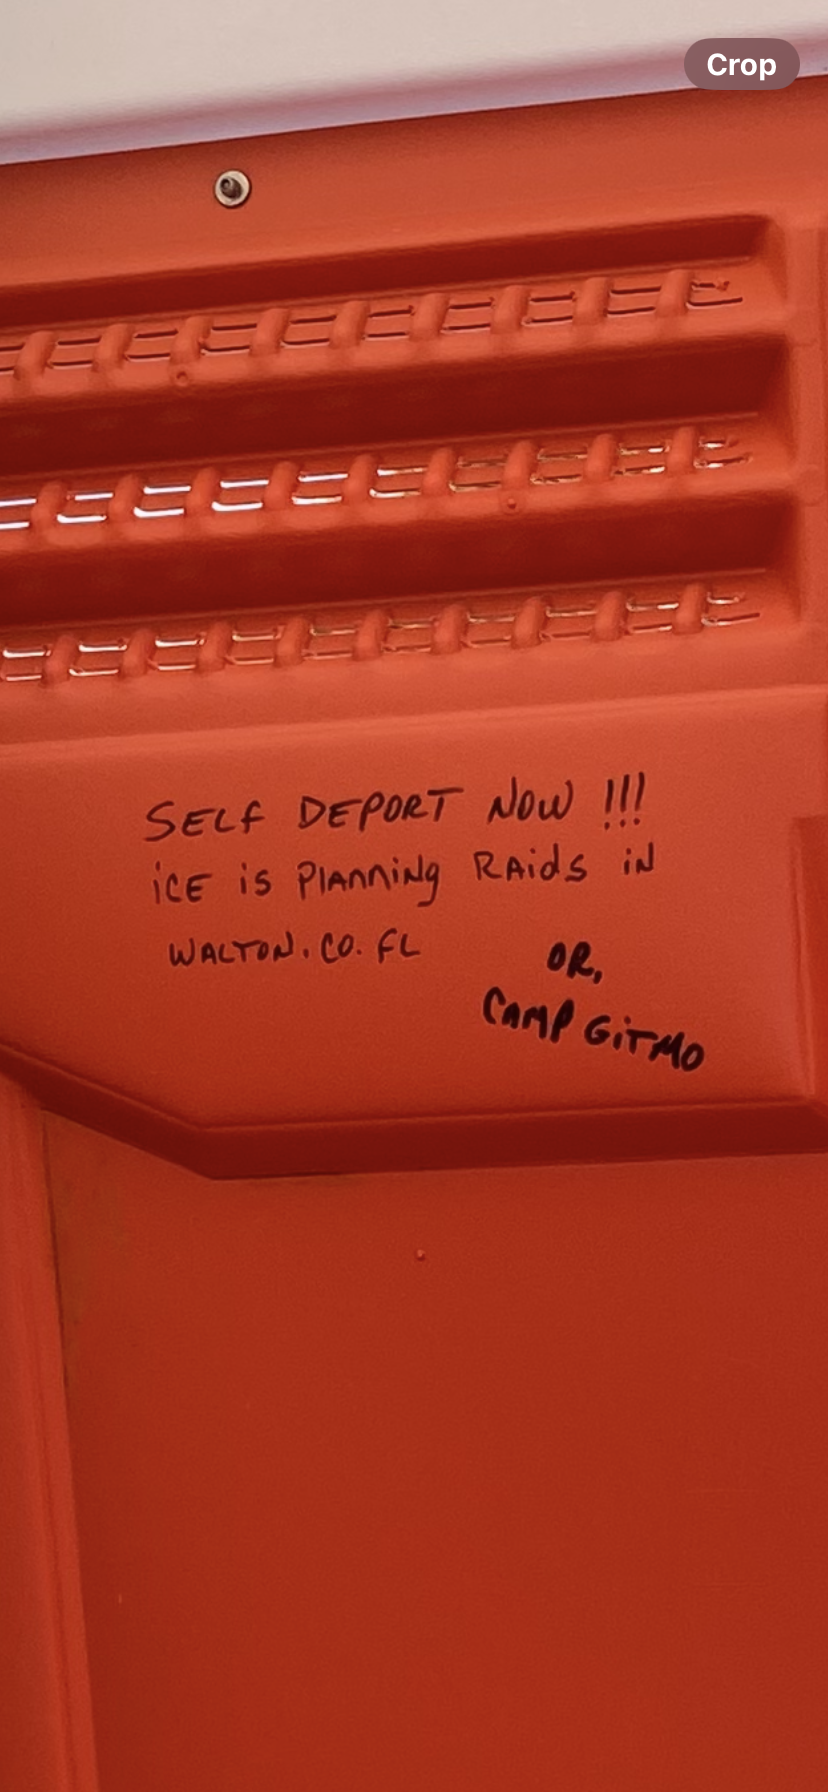 Crop
SELF DEPORT NOW !!!
iCE is PlANNiNg RAidS iN
WALTON. CO. FL
OR,
CAMP GiTMO